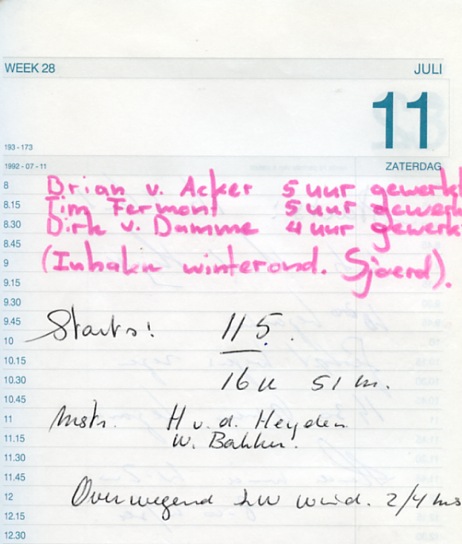 WEEK 28 JULI
11
193 - 173
1992 - 07 - 11 ZATERDAG
8 Brian v. Acker 5 uur gewerkt
8.15 Tim Fermont 5 uur gewerk
8.30 Dirk v. Damme 4 uur gewerk
8.45
9 (Inhalen winterond. Sjoerd).
9.15
9.30
9.45 Starts: 115.
10
10.15
10.30 16 u 51 m.
10.45
11 Instr. H v. d. Heyden
11.15 W. Bakker.
11.30
11.45
12 Overwegend ZW wind. 2/4 ms
12.15
12.30